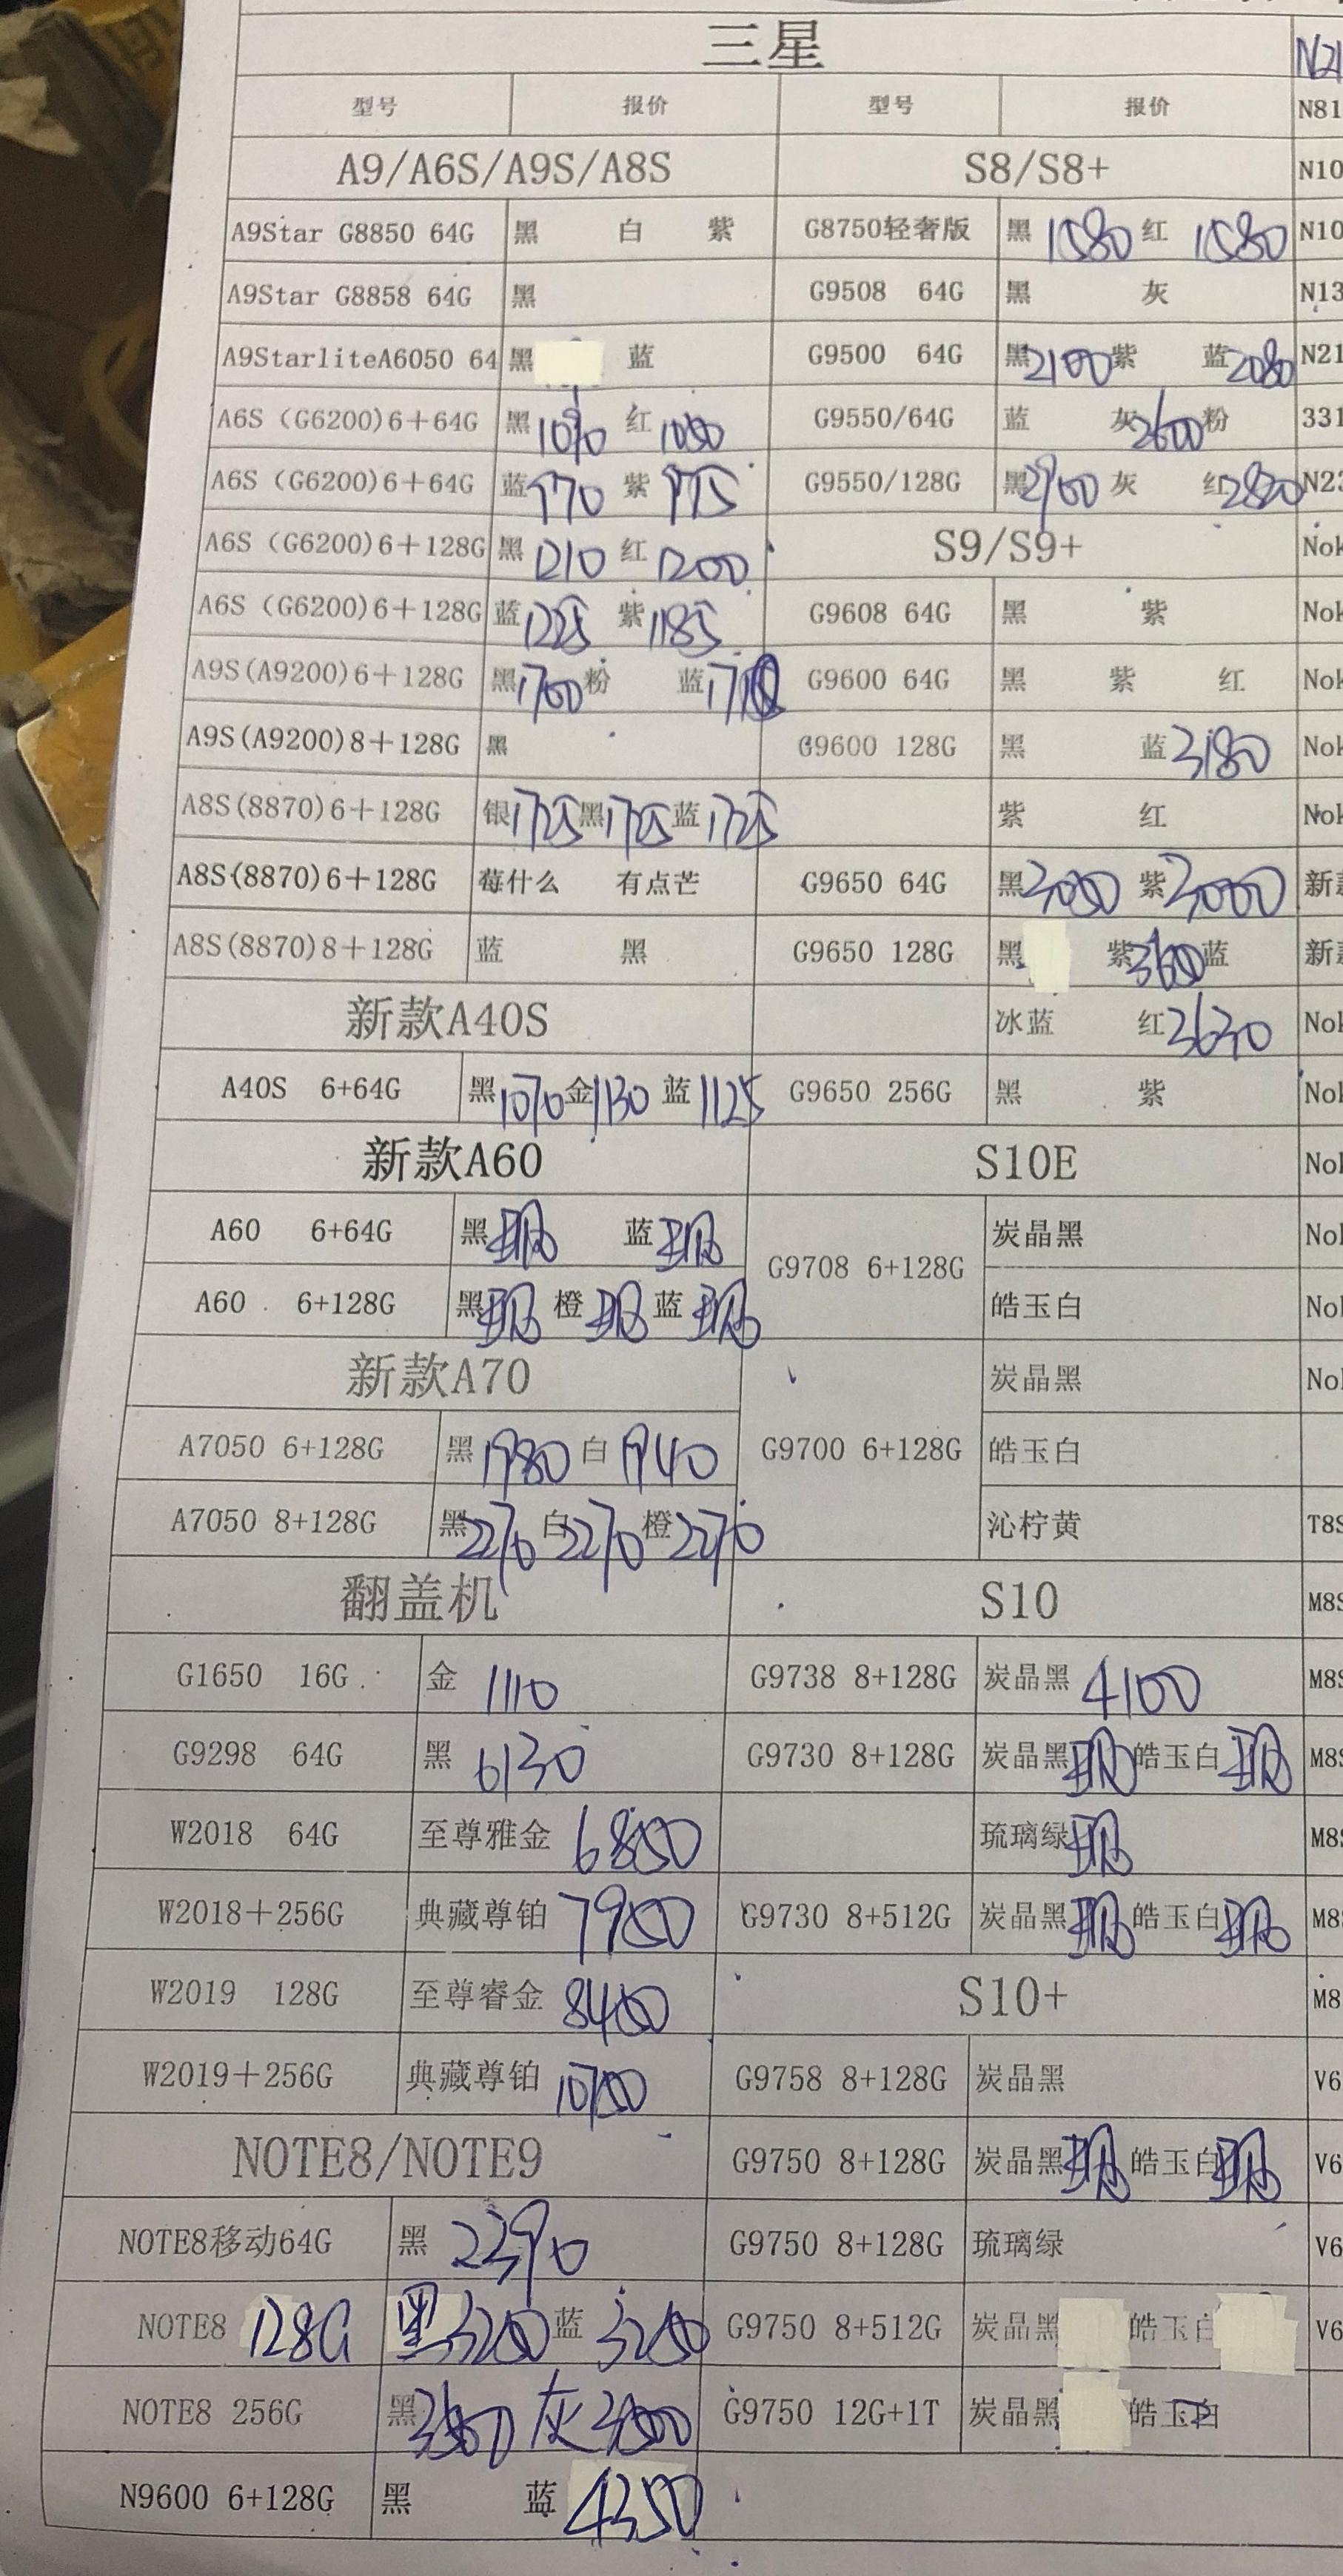 三星
型号 报价 型号 报价
A9/A6S/A9S/A8S S8/S8+
A9Star G8850 64G 黑 白 紫 G8750轻奢版 黑 1580 红 1580
A9Star G8858 64G 黑 G9508 64G 黑 灰
A9StarliteA6050 64 黑 蓝 G9500 64G 黑 2100 紫 蓝 2080
A6S (G6200)6+64G 黑 红 G9550/64G 蓝 灰 2600 粉
A6S (G6200)6+64G 蓝 970 紫 975 G9550/128G 黑 灰 红
A6S (G6200)6+128G 黑 1210 红 1200 S9/S9+
A6S (G6200)6+128G 蓝 1225 紫 1185 G9608 64G 黑 紫
A9S(A9200)6+128G 黑 1760 粉 蓝 G9600 64G 黑 紫 红
A9S(A9200)8+128G 黑 G9600 128G 黑 蓝 3180
A8S(8870)6+128G 银 1725 黑 1725 蓝 1725 紫 红
A8S(8870)6+128G 莓什么 有点芒 G9650 64G 黑 紫 3000
A8S(8870)8+128G 蓝 黑 G9650 128G 黑 紫 蓝
新款A40S 冰蓝 红 3630
A40S 6+64G 黑 1070 金 1130 蓝 1125 G9650 256G 黑 紫
新款A60 S10E
A60 6+64G 黑 蓝 G9708 6+128G 炭晶黑
A60 6+128G 黑 橙 蓝 皓玉白
新款A70 炭晶黑
A7050 6+128G 黑 1980 白 1940 G9700 6+128G 皓玉白
A7050 8+128G 黑 2270 白 2270 橙 2270 沁柠黄
翻盖机 S10
G1650 16G 金 1110 G9738 8+128G 炭晶黑 4100
G9298 64G 黑 6130 G9730 8+128G 炭晶黑 皓玉白
W2018 64G 至尊雅金 6850 琉璃绿
W2018+256G 典藏尊铂 7900 G9730 8+512G 炭晶黑 皓玉白
W2019 128G 至尊睿金 8400 S10+
W2019+256G 典藏尊铂 G9758 8+128G 炭晶黑
NOTE8/NOTE9 G9750 8+128G 炭晶黑 皓玉白
NOTE8移动64G 黑 2390 G9750 8+128G 琉璃绿
NOTE8 128G 黑 蓝 G9750 8+512G 炭晶黑 皓玉白
NOTE8 256G 黑 灰 G9750 12G+1T 炭晶黑 皓玉白
N9600 6+128G 黑 蓝 4350